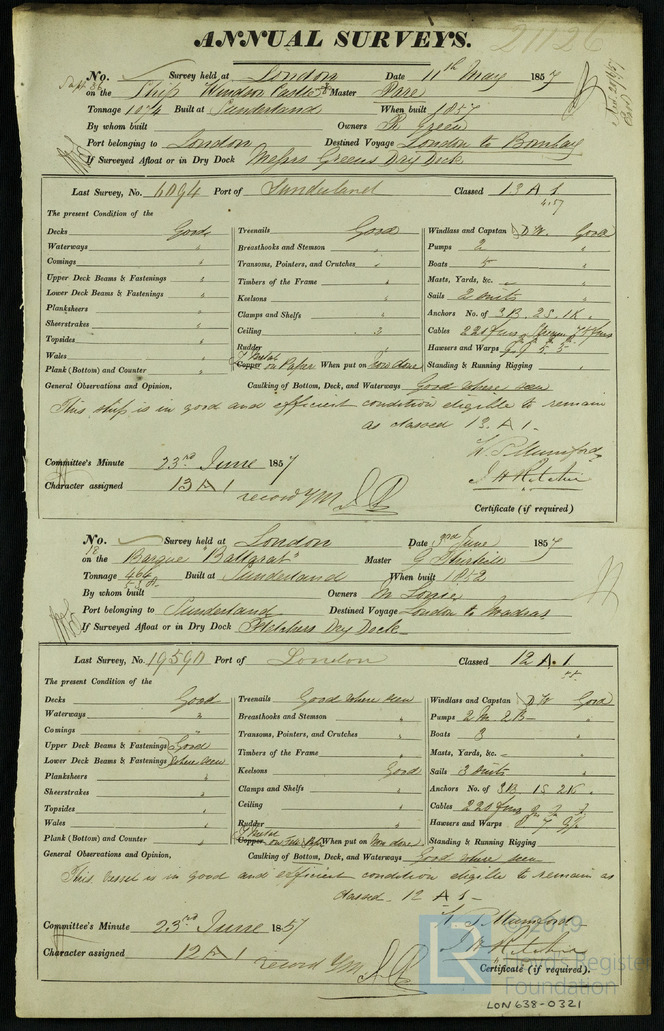 ANNUAL SURVEYS.
21126
No. Survey held at London Date 11th May 1857
on the Ship Windsor Castle Master Pare
Tonnage 1074 Built at Sunderland When built 1857
By whom built Owners R Green
Port belonging to London Destined Voyage London to Bombay
If Surveyed Afloat or in Dry Dock Messrs Greens Dry Dock
Last Survey, No. 6094 Port of Sunderland Classed 13 A 1
4.57
The present Condition of the
Decks Good
Waterways "
Comings "
Upper Deck Beams & Fastenings "
Lower Deck Beams & Fastenings "
Planksheers "
Sheerstrakes "
Topsides "
Wales "
Plank (Bottom) and Counter "
Treenails Good
Breasthooks and Stemson "
Transoms, Pointers, and Crutches "
Timbers of the Frame "
Keelsons "
Clamps and Shelfs "
Ceiling "
Rudder
Y Metal
Copper on Paper When put on Now done
Windlass and Capstan D W. Good
Pumps 2 "
Boats 5 "
Masts, Yards, &c. "
Sails 2 Suits "
Anchors No. of 3B. 2S. 1K. "
Cables 220 fms
Hawsers and Warps
Standing & Running Rigging "
General Observations and Opinion, Caulking of Bottom, Deck, and Waterways Good where seen
This ship is in good and efficient condition eligible to remain
as classed 13. A 1 -
W. P. Mumford
J H Ritchie
Committee's Minute 23rd June 1857
Character assigned 13 A 1
record YM
Certificate (if required)
No. Survey held at London Date 3rd June 1857
on the Barque "Ballarat" Master G
Tonnage 464 Built at Sunderland When built 1852
By whom built Owners
Port belonging to Sunderland Destined Voyage London to Madras
If Surveyed Afloat or in Dry Dock Fletchers Dry Dock
Last Survey, No. 19590 Port of London Classed 12 A.1
The present Condition of the
Decks Good
Waterways "
Comings "
Upper Deck Beams & Fastenings Good
Lower Deck Beams & Fastenings where seen
Planksheers "
Sheerstrakes "
Topsides "
Wales "
Plank (Bottom) and Counter "
Treenails Good where seen
Breasthooks and Stemson "
Transoms, Pointers, and Crutches "
Timbers of the Frame "
Keelsons Good
Clamps and Shelfs "
Ceiling "
Rudder "
Y Metal
Copper on When put on Now done
Windlass and Capstan D W Good
Pumps 2 M. 2B - "
Boats 3 "
Masts, Yards, &c. - "
Sails 3 Suits "
Anchors No. of 3B 1S. 2K. "
Cables 220 fms
Hawsers and Warps
Standing & Running Rigging
General Observations and Opinion, Caulking of Bottom, Deck, and Waterways Good where seen
This vessel is in good and efficient condition eligible to remain as
classed - 12 A 1 -
W P Mumford
J H Ritchie
Committee's Minute 23rd June 1857
Character assigned 12 A 1
record YM.
Certificate (if required).
© 2019
LR Lloyd's Register
Foundation
LON638-0321